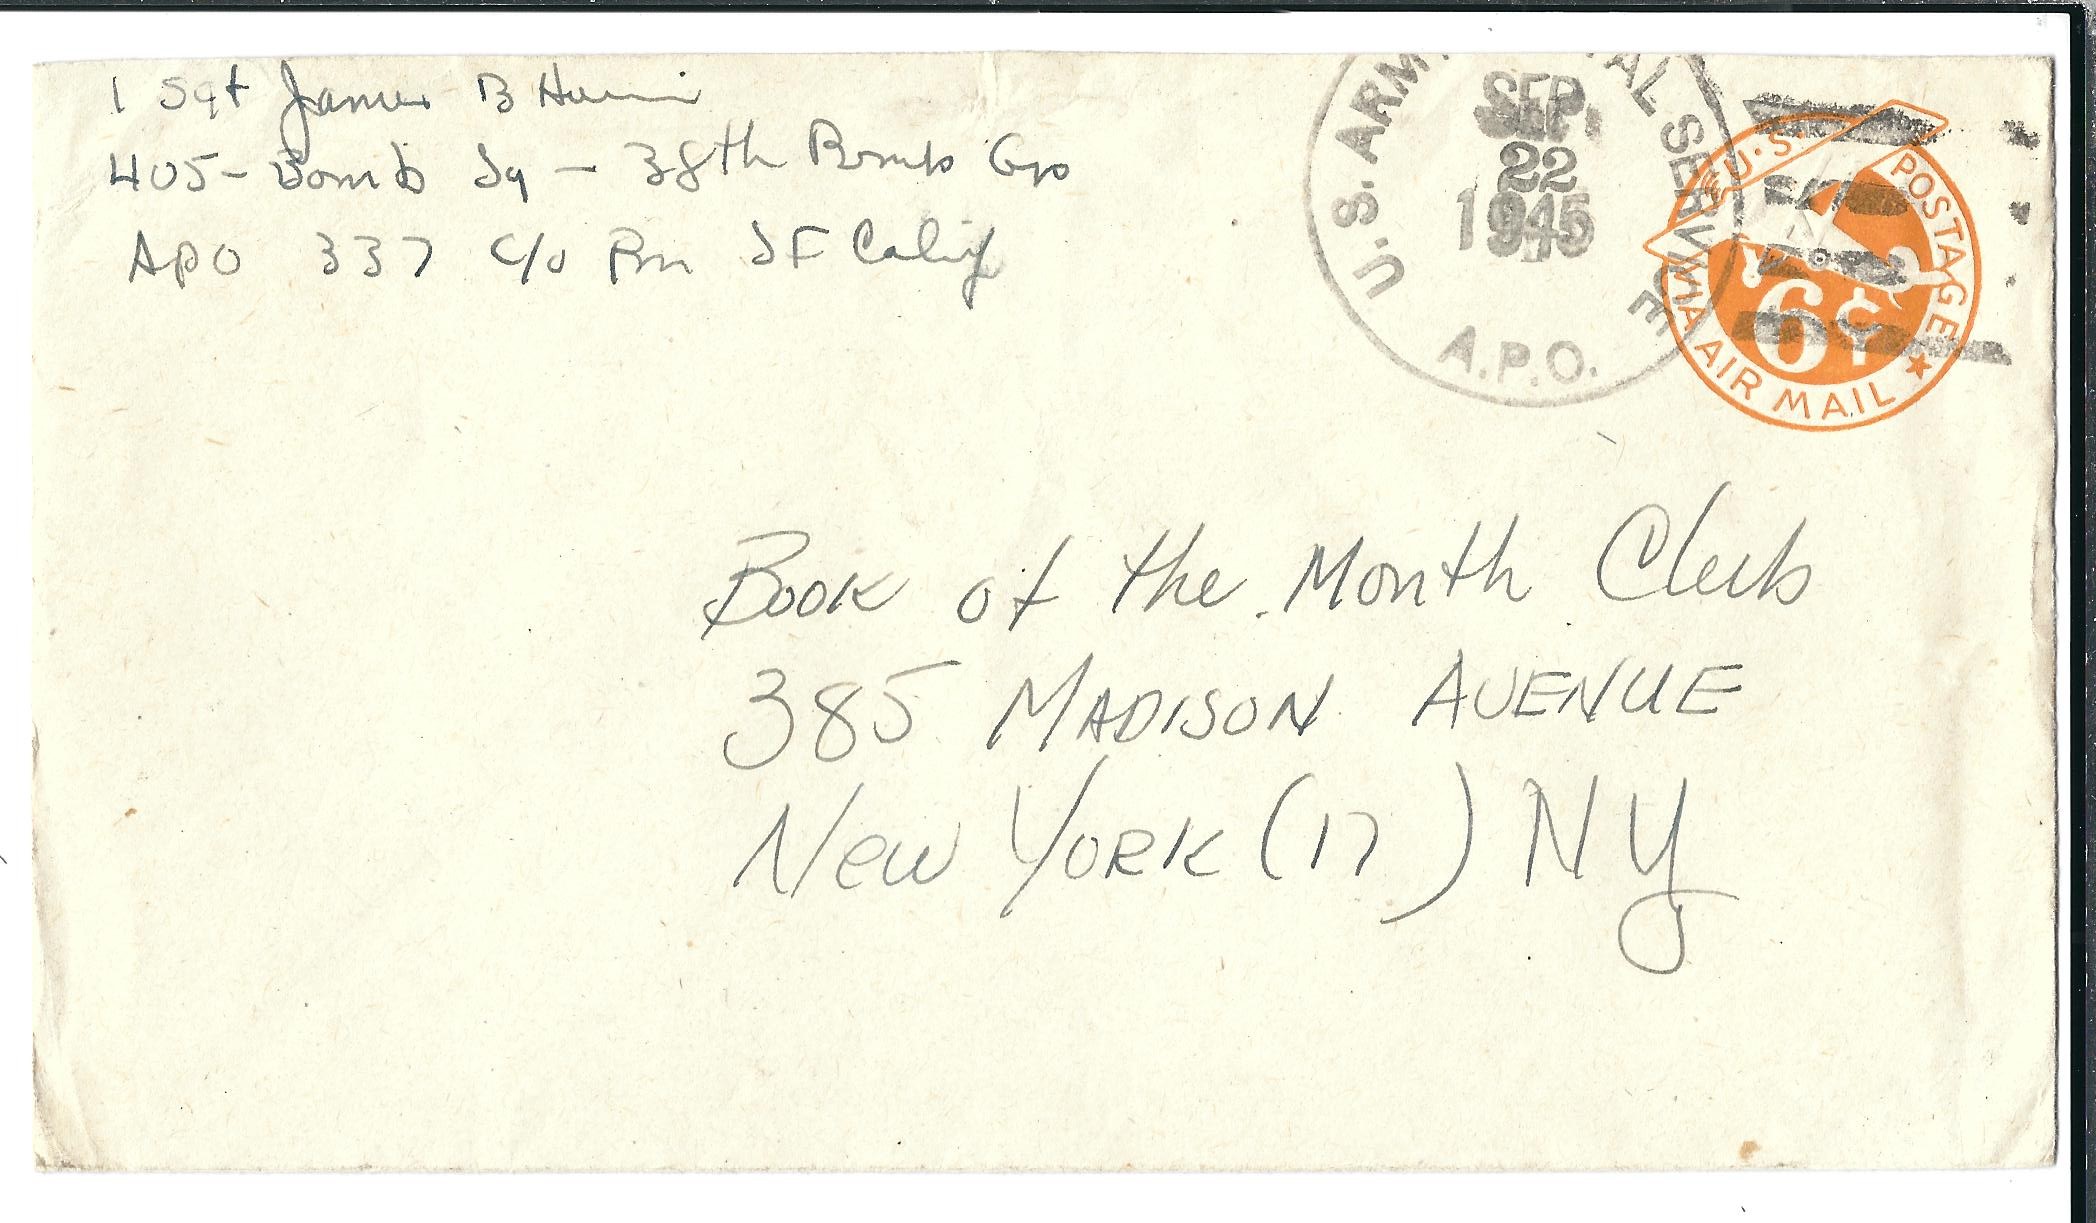 1 Sgt James B
405 - Bomb Sq - 38th Bomb Gp
APO 337 c/o Pm SF Calif
U.S. ARMY POSTAL SERVICE
SEP
22
1945
A.P.O.
U.S. POSTAGE
6¢
VIA AIR MAIL
Book of the Month Club
385 MADISON AVENUE
New YORK (17) NY